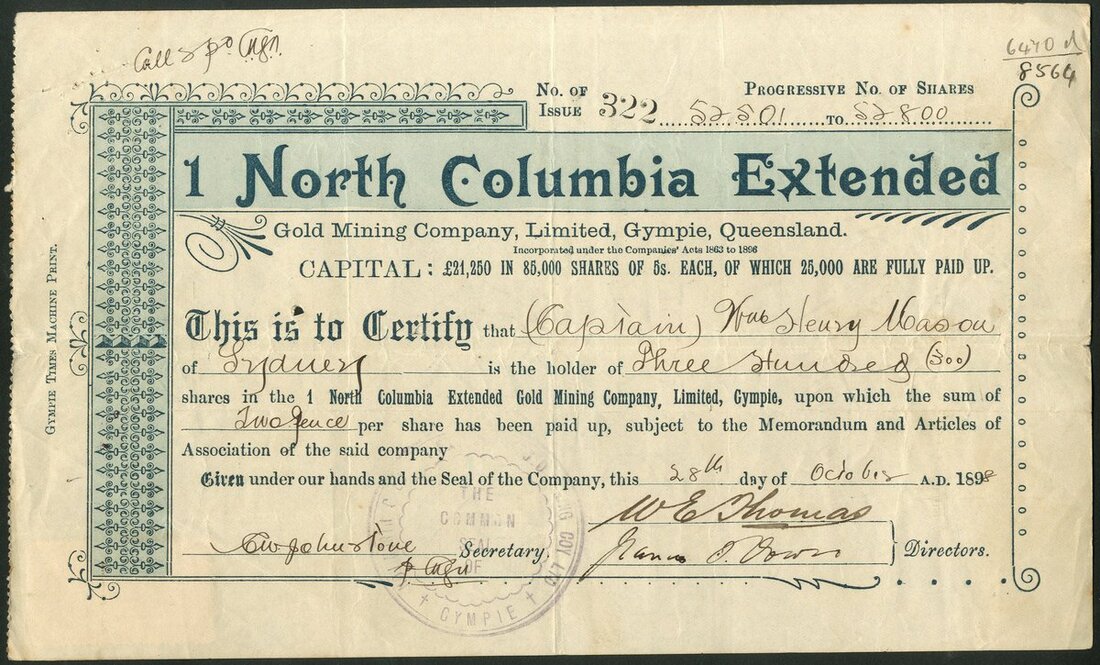 Call
6470
8564
No. of Issue 322 Progressive No. of Shares
52501 to 52800
1 North Columbia Extended
Gold Mining Company, Limited, Gympie, Queensland.
Incorporated under the Companies' Acts 1863 to 1896
CAPITAL: £21,250 IN 85,000 SHARES OF 5s. EACH, OF WHICH 25,000 ARE FULLY PAID UP.
This is to Certify that (Captain) Wm Henry Mason
of Sydney is the holder of Three Hundred (300)
shares in the 1 North Columbia Extended Gold Mining Company, Limited, Gympie, upon which the sum of
Twopence per share has been paid up, subject to the Memorandum and Articles of
Association of the said company
Given under our hands and the Seal of the Company, this 28th day of October A.D. 1898
W E Thomas
Johnstone Secretary.
Directors.
THE
COMMON
SEAL
OF
COY LTD
GYMPIE
Gympie Times Machine Print.